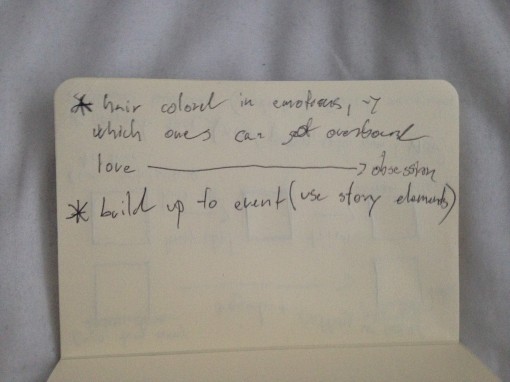 * hair colored in emotions, →
which ones can get overboard
love ⟶ obsession
* build up to event (use story elements)